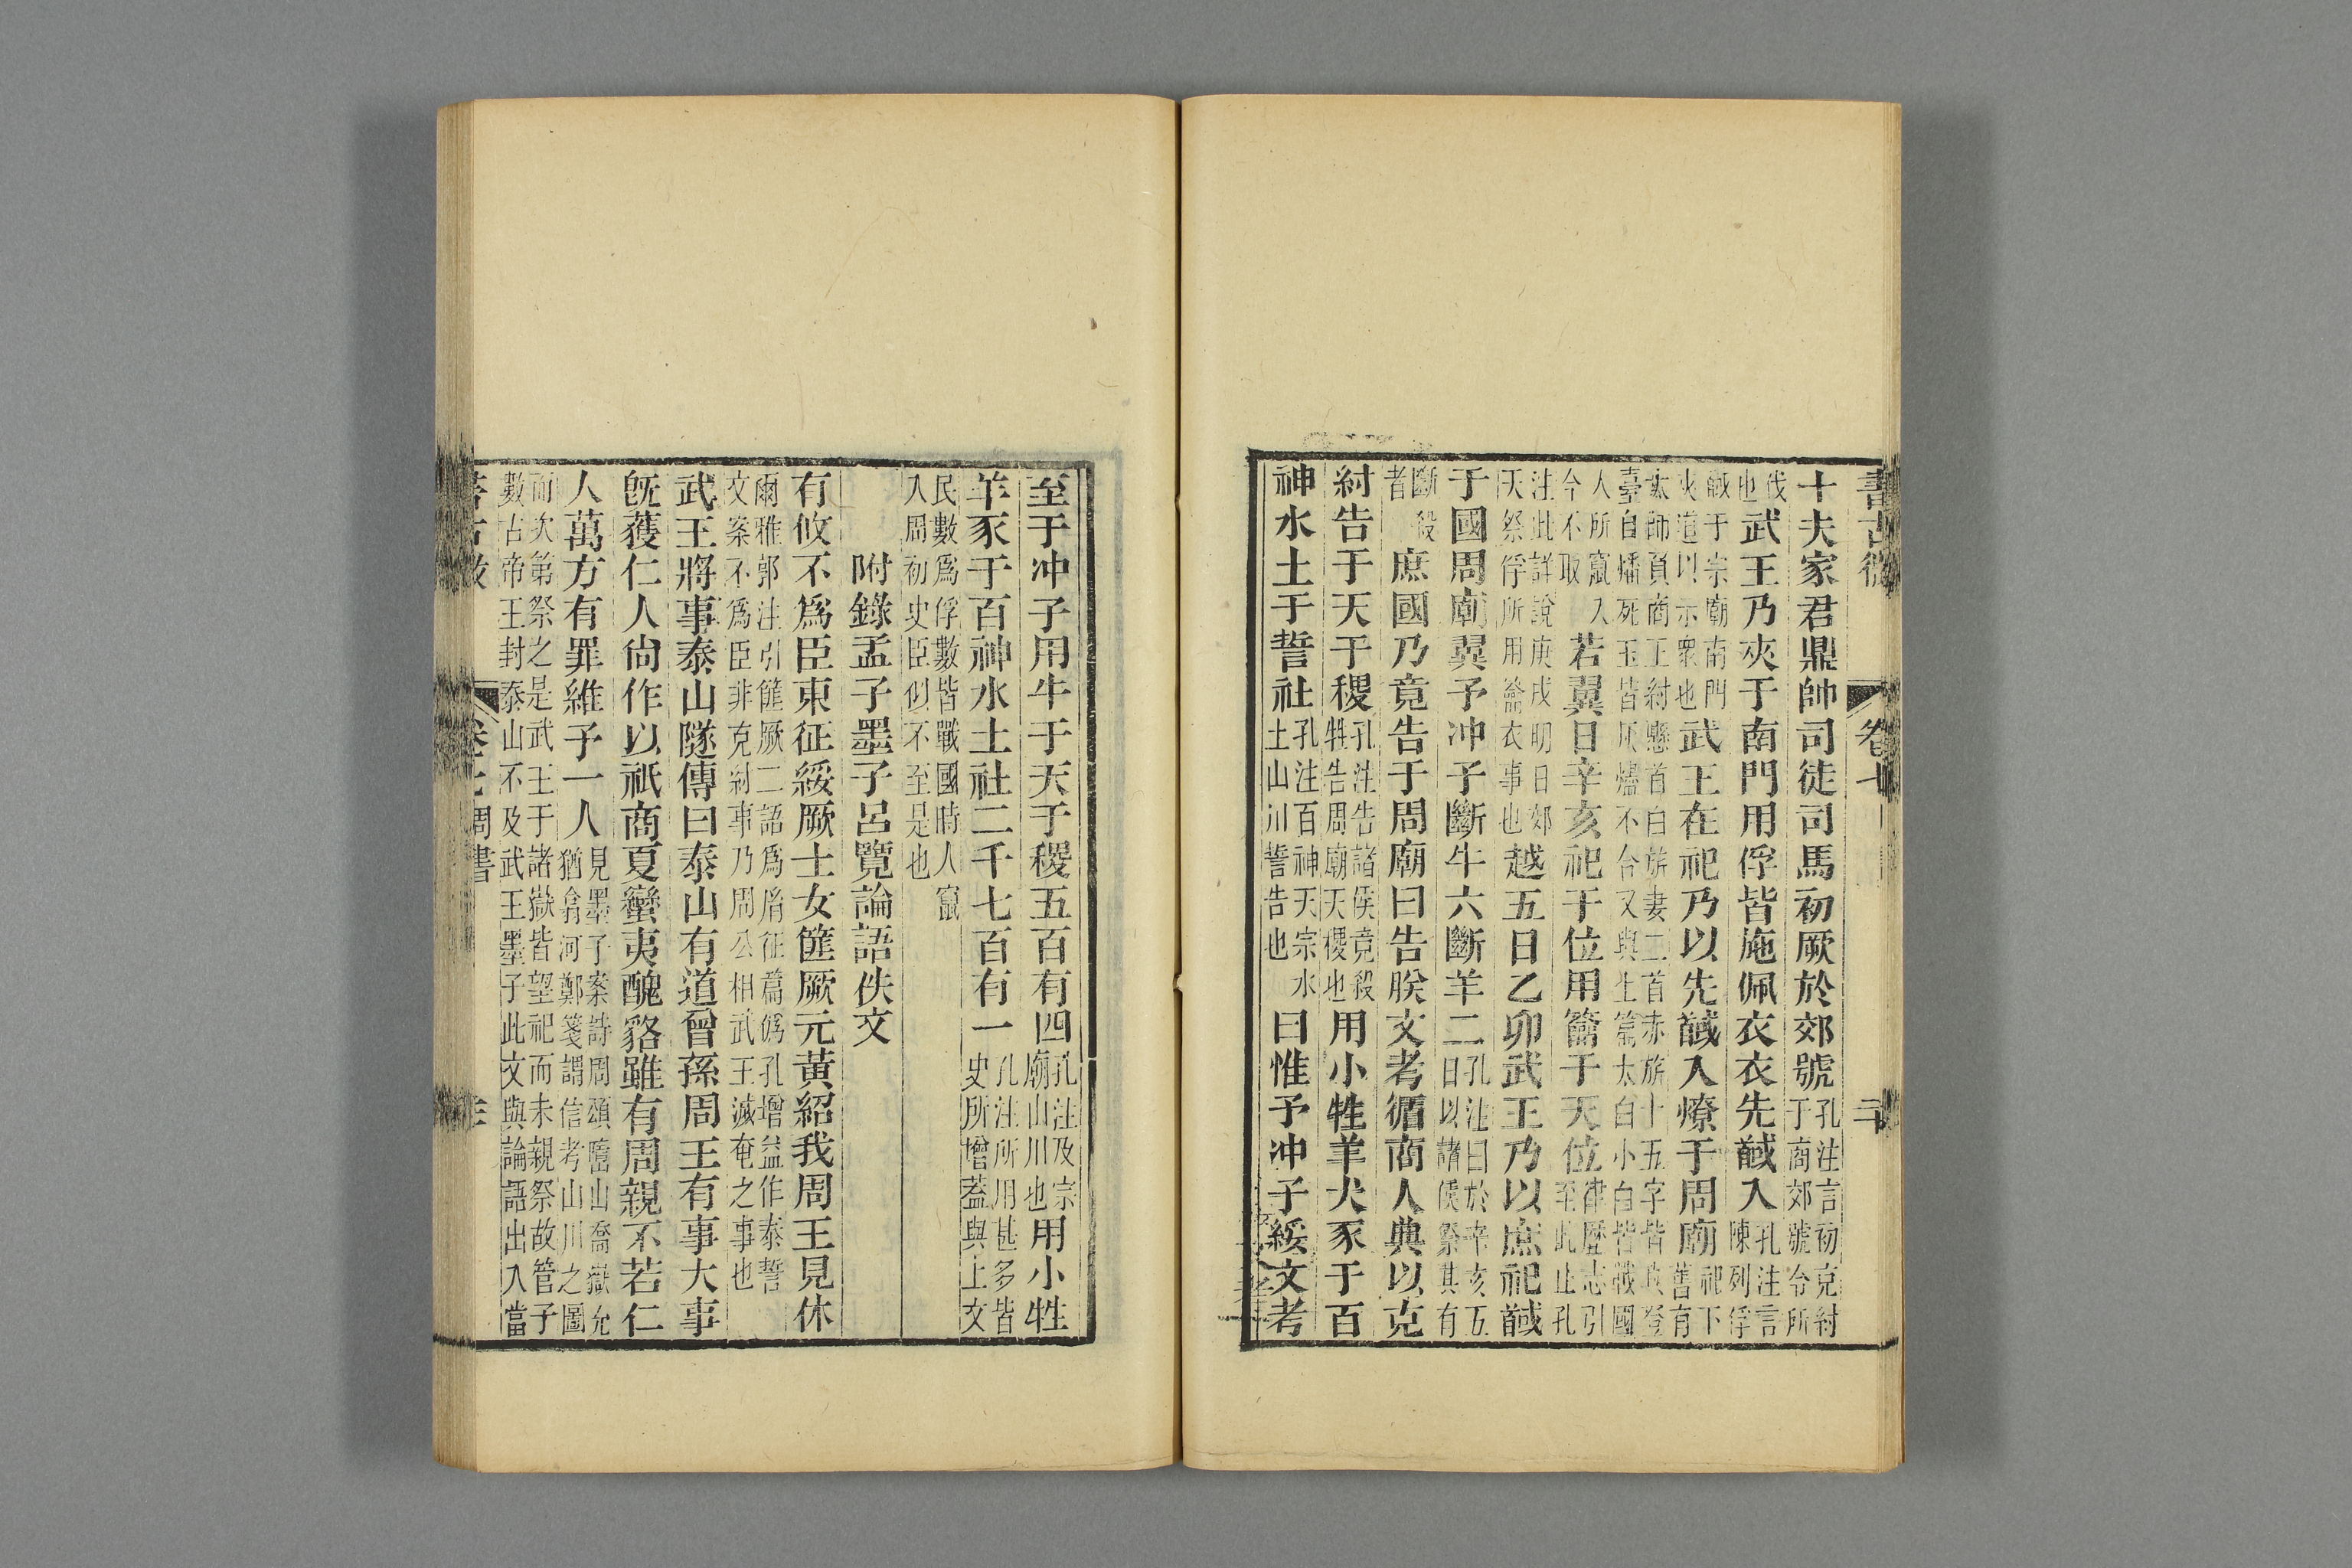 書古微
卷七
十夫家君鼎帥司徒司馬初厥於郊號孔注言初克紂于商郊號令所
伐也武王乃夾于南門用俘皆施佩衣衣先馘入孔注言陳列俘
馘于宗廟南門夾道以示衆也武王在祀乃以先馘入燎于周廟祀下舊有
太師負商王紂懸首白旂妻二首赤旂十五字皆
臺自燔死玉皆灰燼不合又與上篇太白小白皆戰國
人所竄入今不取若翼日辛亥祀于位用籥于天位律歷志引至此止孔
注此詳說庚戌明日郊天祭俘所用籥衣事也越五日乙卯武王乃以庶祀馘
于國周廟翼予冲子斷牛六斷羊二孔注曰於辛亥五日以諸侯祭其有
斷殺者庶國乃竟告于周廟曰告朕文考循商人典以克
紂告于天于稷孔注告諸侯竟殺牲告周廟天稷也用小牲羊犬豕于百
神水土于誓社孔注百神天宗水土山川誓告也曰惟予冲子綏文考
至于冲子用牛于天于稷五百有四孔注及宗廟山川也用小牲
羊豕于百神水土社二千七百有一孔注所用甚多皆史所增葢與上文
民數爲俘數皆戰國時人竄入周初史臣似不至是也
附錄孟子墨子呂覽論語佚文
有攸不爲臣東征綏厥士女篚厥元黃紹我周王見休
爾雅郭注引篚厥二語爲胤征篇僞孔增益作泰誓
文案不爲臣非克紂事乃周公相武王滅奄之事也
武王將事泰山隧傳曰泰山有道曾孫周王有事大事
旣獲仁人尙作以祇商夏蠻夷醜貉雖有周親不若仁
人萬方有罪維予一人見墨子案詩周頌墮山喬嶽允猶翕河鄭箋謂信考山川之圖
而次第祭之是武王于諸嶽皆望祀而未親祭故管子
數古帝王封泰山不及武王墨子此文與論語出入當
書古微
卷七周書